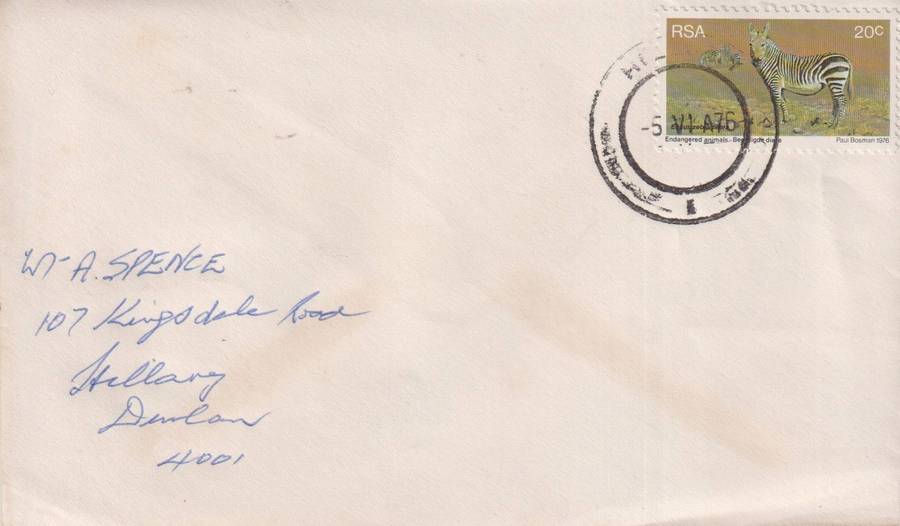 RSA 20c
-5 VI A76
Endangered animals - Bedreigde diere Paul Bosman 1976
Mr A. SPENCE
107 Kingsdale Road
Hillary
Durban
4001